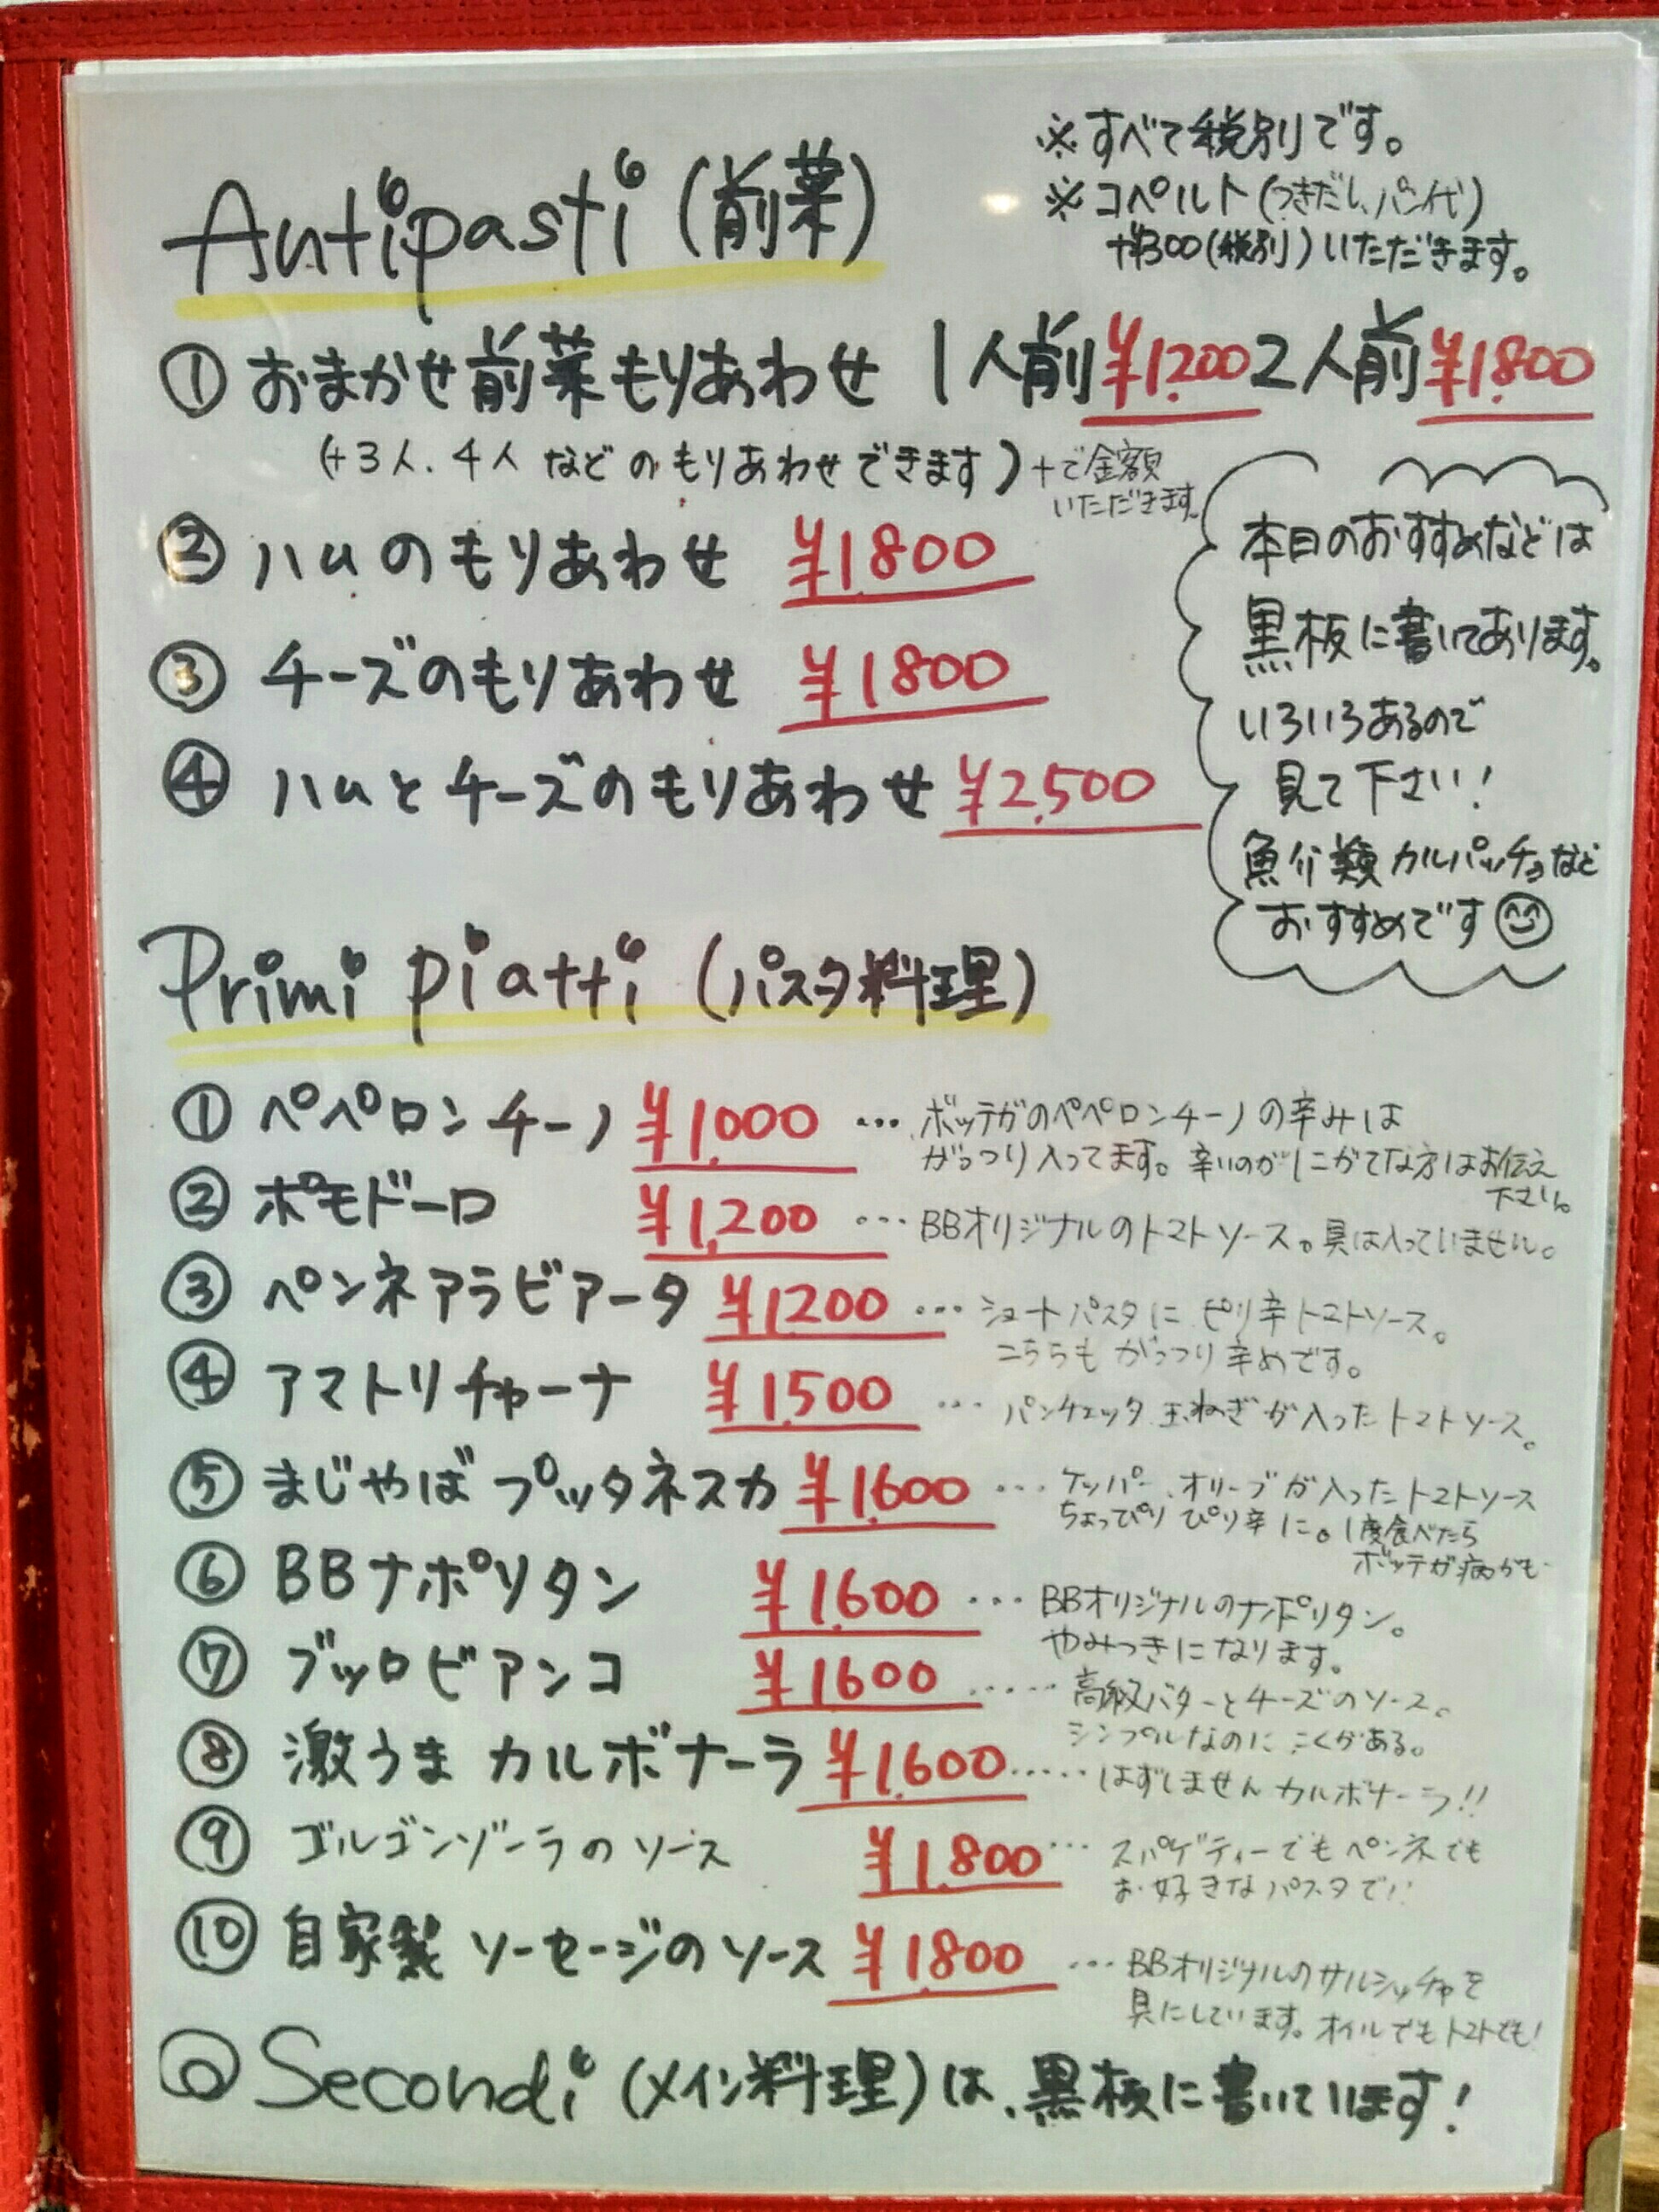 ※すべて税別です。
※コペルト(つきだし、パン代)
+¥300(税別)いただきます。
Antipasti(前菜)
① おまかせ前菜もりあわせ 1人前¥1,200 2人前¥1,800
(+3人、4人などのもりあわせできます)+で金額
いただきます。
② ハムのもりあわせ ¥1,800
③ チーズのもりあわせ ¥1,800
④ ハムとチーズのもりあわせ ¥2,500
本日のおすすめなどは
黒板に書いてあります。
いろいろあるので
見て下さい!
魚介類カルパッチョなど
おすすめです
Primi piatti(パスタ料理)
① ペペロンチーノ ¥1,000 … ボッテガのペペロンチーノの辛みは
がっつり入ってます。辛いのがにがてな方はお伝え
下さい。
② ポモドーロ ¥1,200 … BBオリジナルのトマトソース。具は入っていません。
③ ペンネアラビアータ ¥1,200 … ショートパスタにピリ辛トマトソース。
こちらもがっつり辛めです。
④ アマトリチャーナ ¥1,500 … パンチェッタ、玉ねぎが入ったトマトソース。
⑤ まじやばプッタネスカ ¥1,600 … ケッパー、オリーブが入ったトマトソース
ちょっぴりぴり辛に。1度食べたら
ボッテガ病かも
⑥ BBナポリタン ¥1,600 … BBオリジナルのナポリタン。
やみつきになります。
⑦ ブッロビアンコ ¥1,600 ‥‥ 高級バターとチーズのソース。
シンプルなのにこくがある。
⑧ 激うまカルボナーラ ¥1,600 ‥‥ はずしませんカルボナーラ!!
⑨ ゴルゴンゾーラのソース ¥1,800 … スパゲティーでもペンネでも
お好きなパスタで!!
⑩ 自家製ソーセージのソース ¥1,800 … BBオリジナルのサルシッチャを
具にしています。オイルでもトマトでも!
◎Secondi(メイン料理)は、黒板に書いています!